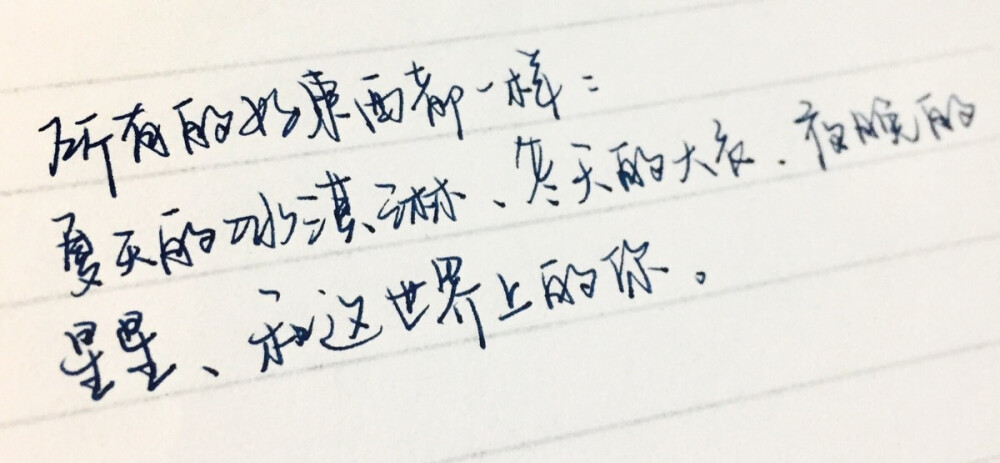 所有的好東西都一样：
夏天的冰淇淋、冬天的大衣、夜晚的
星星、和这世界上的你。